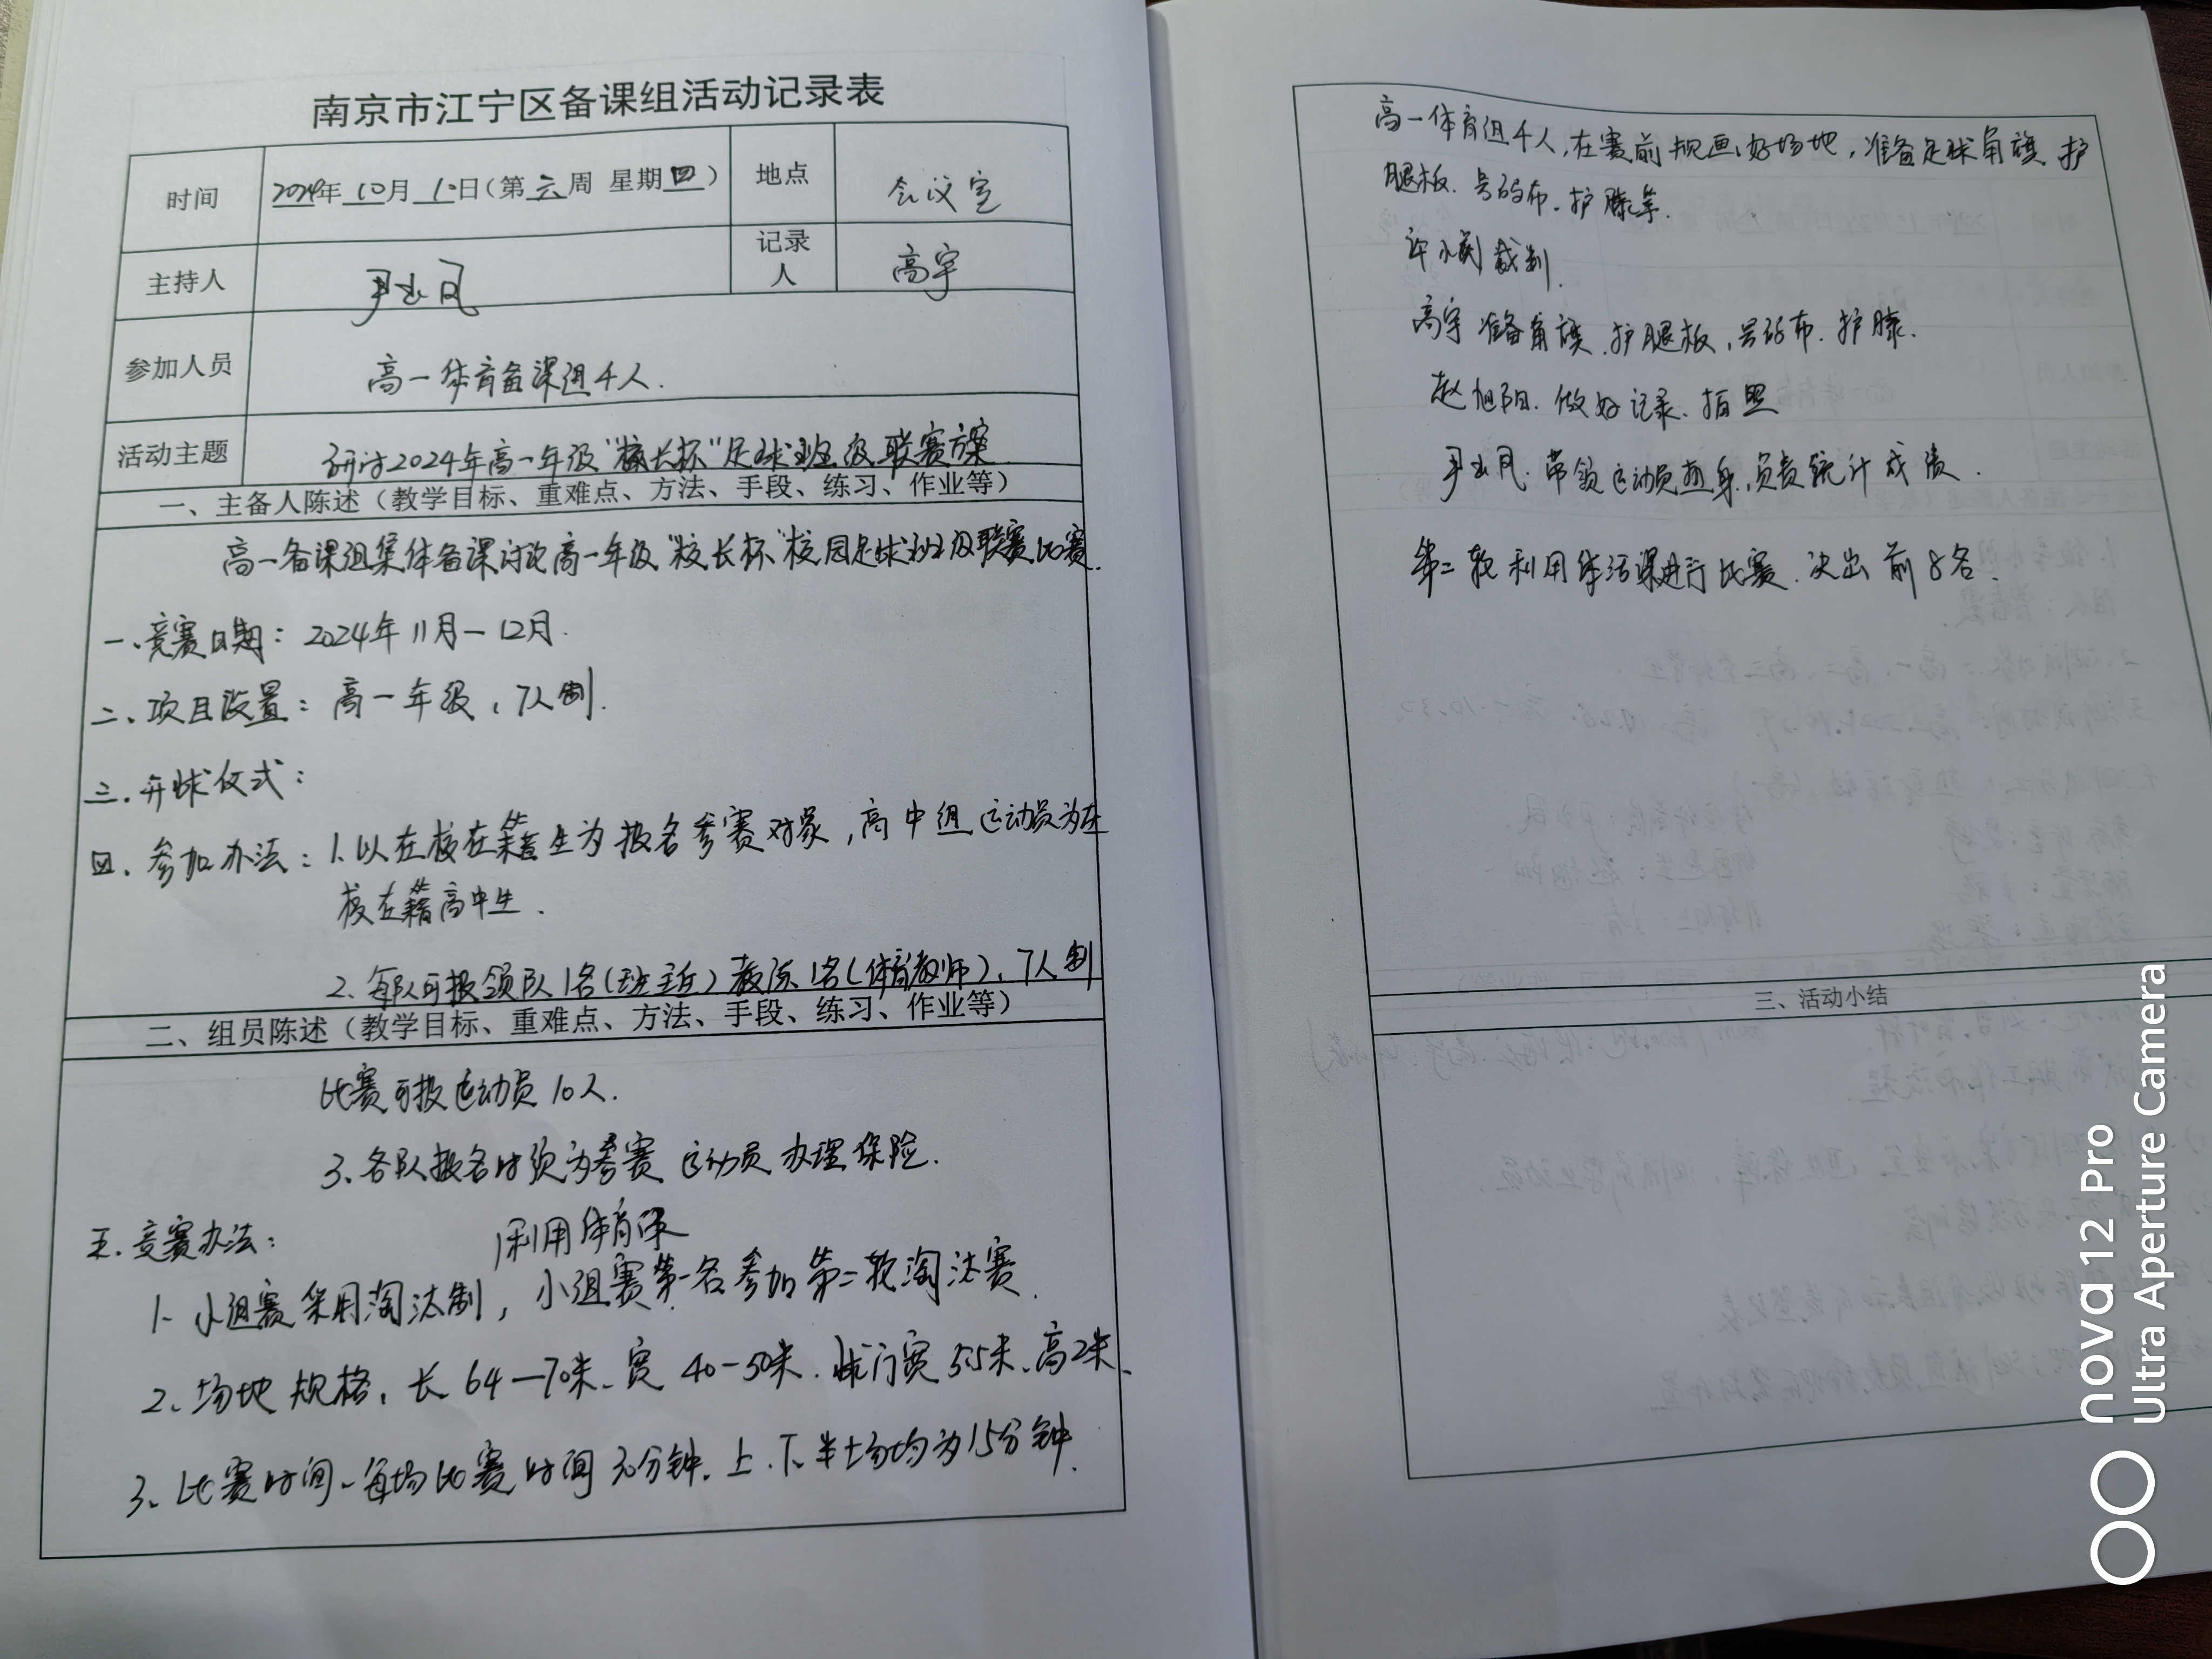 南京市江宁区备课组活动记录表
时间 2024年 10月 10日(第 六 周 星期 四) 地点 会议室
主持人 尹业风 记录人 高宇
参加人员 高一体育备课组4人.
活动主题 研讨2024年高一年级"校长杯"足球班级联赛方案
一、主备人陈述（教学目标、重难点、方法、手段、练习、作业等）
高一备课组集体备课讨论高一年级"校长杯"校园足球班级联赛比赛.
一、竞赛日期: 2024年11月—12月.
二、项目设置: 高一年级、7人制.
三、开球仪式:
四、参加办法: 1.以在校在籍生为报名参赛对象,高中组运动员为在
校在籍高中生.
2、每队可报领队1名(班主任)教练1名(体育教师)、7人制
二、组员陈述（教学目标、重难点、方法、手段、练习、作业等）
比赛可报运动员10人.
3、各队报名时须为参赛运动员办理保险.
五、竞赛办法:
利用体育课
1、小组赛采用淘汰制, 小组赛第一名参加第二轮淘汰赛.
2、场地规格、长64—70米、宽40—50米.球门宽5.5米、高2米、
3、比赛时间、每场比赛时间30分钟.上、下半场均为15分钟.
高一体育组4人,在赛前规画好场地,准备足球角旗、护
腿板、号码布、护膝等.
许小 裁判.
高宇 准备角旗、护腿板,号码布、护膝.
赵旭阳、做好记录、拍照
尹业风: 带领运动员热身,负责统计成绩.
第二轮利用体活课进行比赛、决出前8名.
三、活动小结
nova 12 Pro
Ultra Aperture Camera